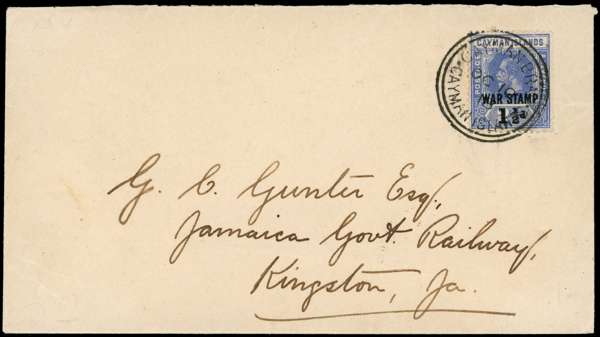 CAYMAN ISLANDS
WAR STAMP
1½d
CAYMAN ISLANDS
G. C. Gunter Esq,
Jamaica Govt. Railway,
Kingston, Ja.